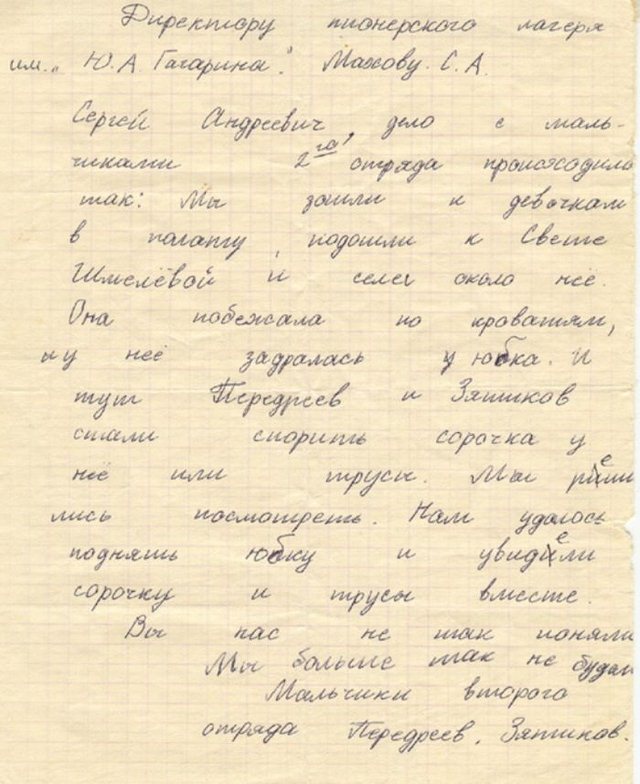 Директору пионерского лагеря
им. „Ю.А. Гагарина". Махову. С.А.
Сергей Андреевич, дело с маль-
чиками 2го отряда происходило
так: Мы зашли к девочкам
в палату, подошли к Свете
Шмелёвой и селе около неё.
Она побежала по кроватям,
и у неё задралась юбка. И
тут Передреев и Зятиков
стали спорить сорочка у
неё или трусы. Мы реши
лись посмотреть. Нам удалось
поднять юбку и увидели
сорочку и трусы вместе.
Вы нас не так поняли
Мы больше так не будем
Мальчики второго
отряда Передреев, Зятиков.